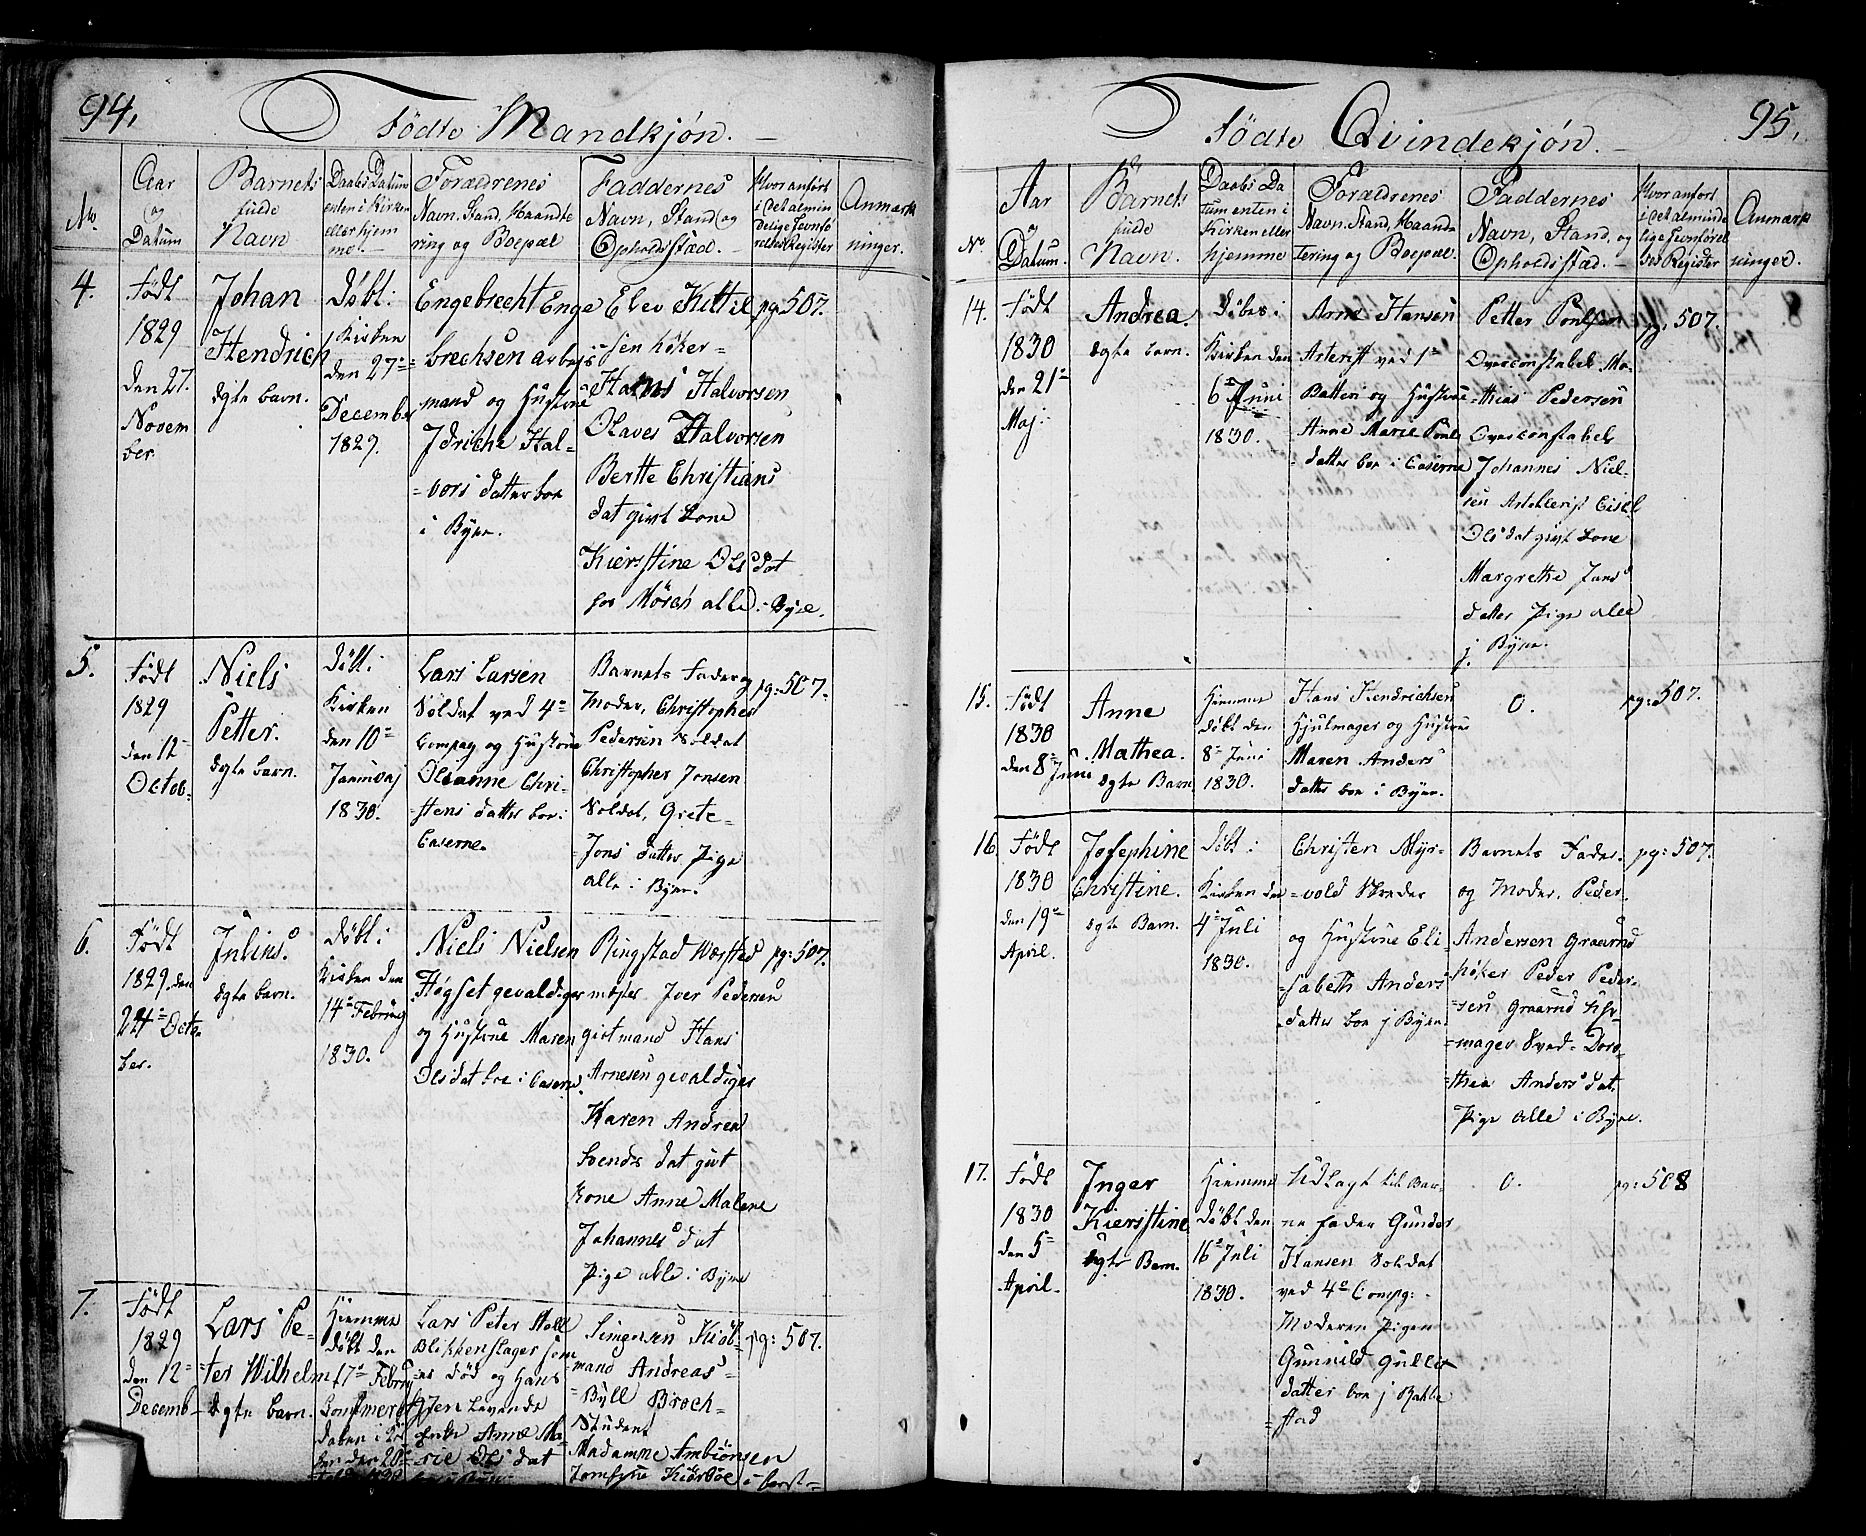 94.
Fødte Mandkjøn.
No.
Aar og Datum
Barnets fulde Navn
Daabs Datum enten i Kirken eller hjemme.
Forældrenes Navn, Stand, Haandtering og Boepæl
Faddernes Navn, Stand og Opholdssted.
Hvor anført i det almindelige Jevnførelses Register
Anmærkninger.
4.
Født
1829
den 27.
Novem
ber.
Johan
Hendrich
ægte barn.
Døbt i
Kirken
den 27de
December
1829.
Engebrecht Enge
brechsen arbeis
mand og Hustrue
Idriche Hal=
=vors datter boe
i Byen.
Elev Kittil
sen høker=
Hans Halvorsen
Olaves Halvorsen
Berthe Christians
dat givt Kone
Kierstine Olsdat
hos Mørch alle i Byen.
pg: 507.
5.
Født
1829
den 12te
Octob=
Niels
Petter.
ægte barn.
Døbt i
Kirken
den 10de
Januaj
1830.
Lars Larsen
Soldat ved 4de
Compag og Hustrue
Oleanne Chri=
stens datter boe i
Caserne.
Barnets Fader og
Moder, Christopher
Pedersen Soldat
Christopher Jonsen
Soldat, Grete=
=Jons datter Pige
alle i Byen.
pg: 507.
6.
Født
1829. den
24de Octo
ber.
Julius.
ægte barn.
Døbt i
Kirken den
14de Februaj
1830.
Niels Nielsen
Høgset gevaldiger
og Hustrue Maren
Olsdat boe i Caserne.
Ringstad Værsted
mester Iver Pedersen
givtmand Hans
Arnesen gevaldiger
Karen Andrea
Svends dat givt
Kone Anne Malene
Johannes dat
Pige alle i Byen
pg: 507.
7.
Født
1829
den 12te
Decemb=
Lars Pe=
=ter Wilhelm
ægte barn.
Hiemme
døbt den
17de Februaj
Lars Peter Holl
Blikkenslager som
er død og Hans
igien Levende
Enke Anne Ma=
rie Olsdat
Simonsen Kiøb=
mand Andreas=
=Bÿll Broch=
Student
Madamme Ambiørnsen
Jomfrue Kiørboe
pg: 507.
95.
Fødte Qvindekjøn.
No
Aar og Datum.
Barnets fulde Navn.
Daabs Datum enten i Kirken eller hjemme
Forældrenes Navn, Stand, Haandtering og Boepæl.
Faddernes Navn, Stand, og Opholdssted.
Hvor anført i det almindelige Jevnførelses Register
Anmærkninger.
14.
Født
1830
den 21de
Maj.
Andrea.
ægte barn.
Døbes i
Kirken den
6te Juni
1830.
Arne Hansen
Arterist ved 1te
Batteri og Hustrue
Anne Marie Pouls
=datter boe i Caserne
Petter Poulsen
Overconstabel Ma=
=thias Pedersen
Overconstabel
Johannes Niel=
sen Artellerist Eisel
Olsdat givt Kone
Margrethe Jans
datter Pige alle
j Byen.
pg: 507.
15.
Født
1830
den 8de Juni
Anne
Mathea.
ægte Barn
Hiemme
døbt den
8de Juni
1830.
Hans Hendrichsen
Hjulmager og Hustrue
Maren Anders
datter boe i Byen.
0.
pg: 507.
16.
Født
1830
den 19de
April.
Josephine
Christine.
ægte Barn.
Døbt i
Kirken den
4de Juli
1830.
Christen Myr=
=vold Skreder
og Hustrue Eli
=sabeth Anders
=datter boe j Byen.
Barnets Fader
og Moder. Peder
Andersen Graarud
høker Peder Peder=
=sen Graarud
=mager Svend= Doro=
=thea Anders dat
Pige alle i Byen.
pg: 507.
17.
Født
1830
den 5te
April.
Inger
Kierstine
ægte Barn.
Hiemme
døbt den
16de Juli
1830.
Udlagt til Bar=
ne fader Gunder
Hansen Soldat
ved 4de Compg:
Moderen Pigen
Gunnild Gullis
datter boe j Bakke
=stad
0.
pg: 508